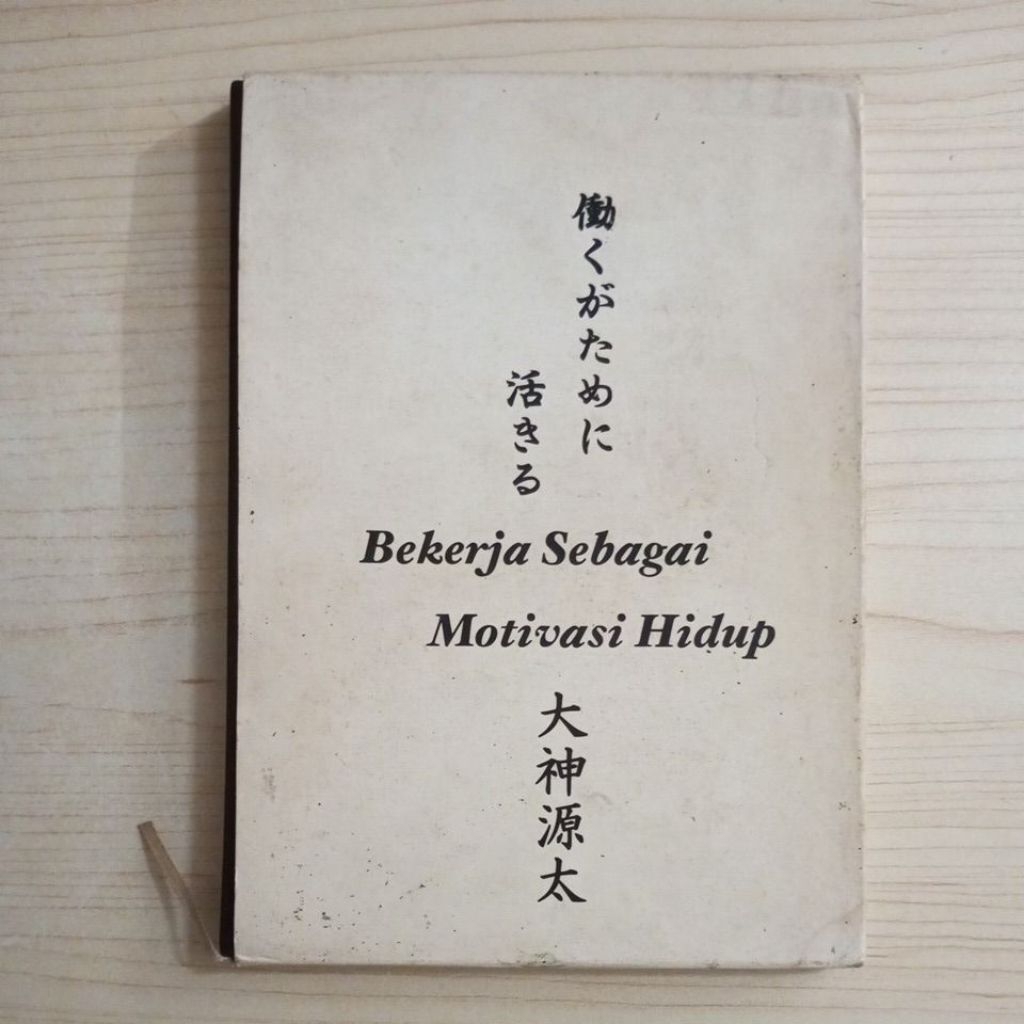 働くがために
活きる
Bekerja Sebagai
Motivasi Hidup
大神源太